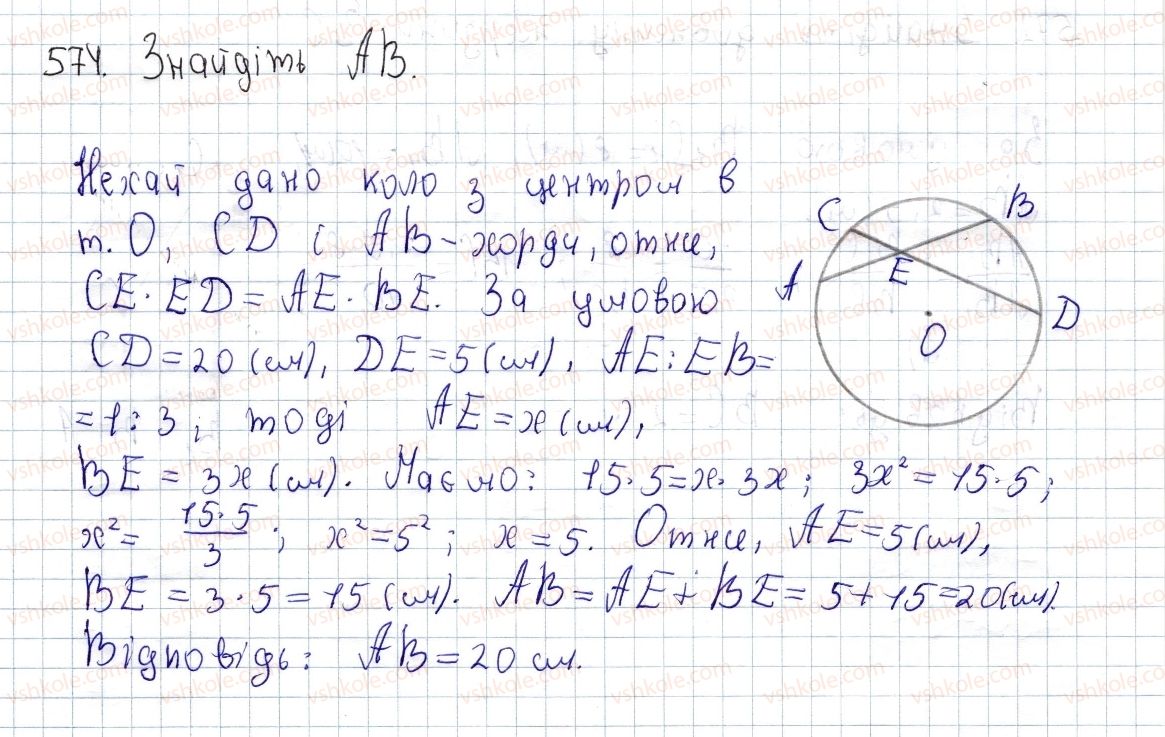 574. Знайдіть AB.
Нехай дано коло з центром в
т. O, CD і AB – хорди, отже,
CE · ED = AE · BE. За умовою
CD = 20 (см), DE = 5 (см), AE : EB =
= 1 : 3, тоді AE = x (см),
BE = 3x (см). Маємо: 15 · 5 = x · 3x; 3x² = 15 · 5;
x² = 15·5/3; x² = 5²; x = 5. Отже, AE = 5 (см),
BE = 3 · 5 = 15 (см). AB = AE + BE = 5 + 15 = 20 (см).
Відповідь: AB = 20 см.
C
B
A
E
D
O
vshkole.com